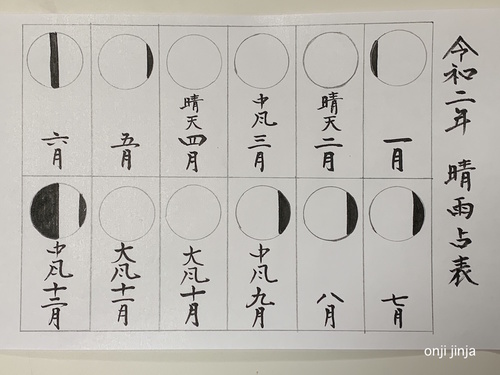 令和二年 晴雨占表
一月
晴天二月
中风三月
晴天四月
五月
六月
七月
八月
中风九月
大风十月
大风十一月
中风十二月
onji jinja